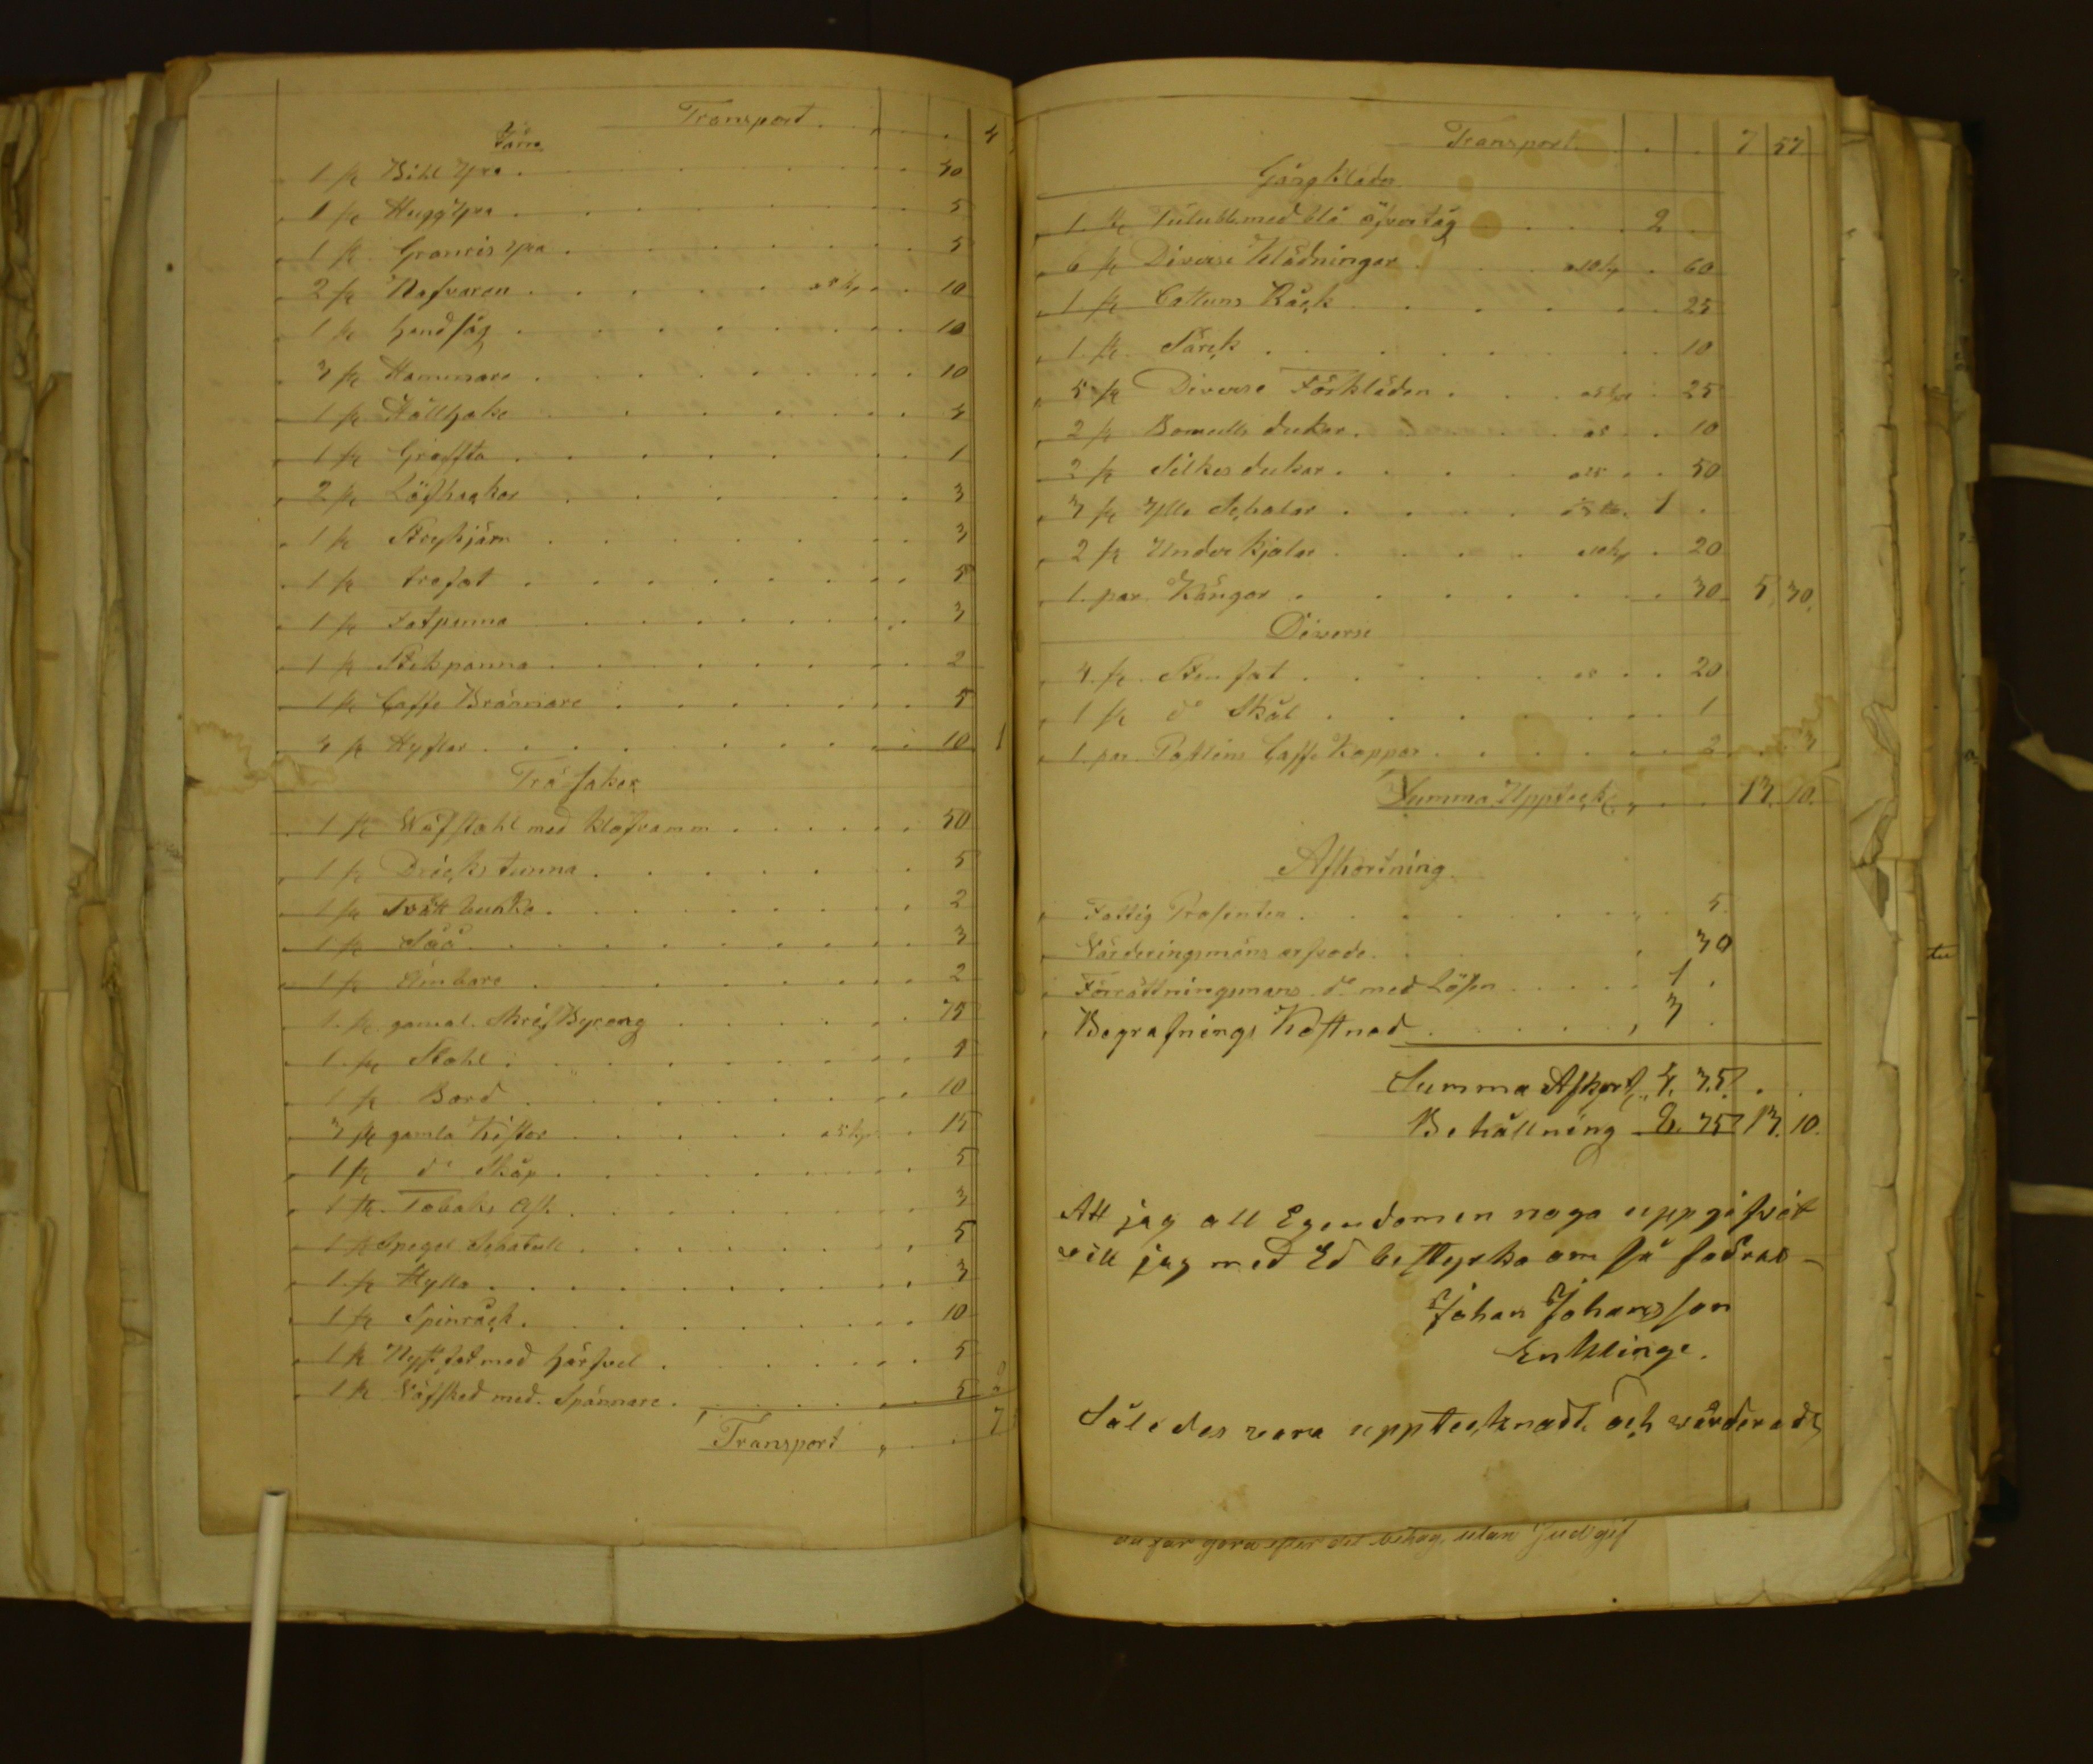 Transport . . . 4
Järn
1 st Bihl Yxa . 30
1 st Huggyxa . 5
1 st Grancis yxa . 5
2 st Nafvaren . a 5 kp . 10
1 st handsåg . 10
3 st Hammare . 10
1 st Hållhake
1 st Greffta . 1
2 st Löfhackor . 3
1 st Strykjärn . 3
1 st trefot . 5
1 st Fotpanna . 3
1 st Stekpanna . 2
1 st Caffe Brännare . 5
st Hyflar . 10 1
Träsaker
1 st Wäfstohl med Kloframm . 50
1 st Dricks tunna . 5
1 st Tvätt bunke . 2
1 st Såå . 3
1 st Embare . 2
1 st gamal Skrif Byrong . 75
1 st Stohl .
1 st Bord . 10
3 st gamla Kistor . a 5 kp . 15
1 st do Skåp . 5
1 st Tobaks Ask . 3
1 st Spegel Schatull . 5
1 st Hylla . 3
1 st Spinråck . 10
1 st Nystfot med härfvel . 5
1 st Väfsked med Spännare . 5 2
Transport . 7
Transport . . 7 57
Gångkläder
1 st Tulubb med blå öfvertåg . 2 .
6 st Diverse Klädningar . a 10 kp . 60
1 st Cattuns Råck . 25
1 st Särck . 10
5 st Diverse Förkläden . a 5 kp . 25
2 st Bomulls dukar . a 5 . 10
2 st Silkes dukar . a 25 . 50
3 st Ylle Schalar . 1 .
2 st Under Kjolar . a 10 kp . 20
1 par Kängor . 30 5 30
Diverse
4 st Stenfat . a 5 . 20
1 st do Skål . 1
1 par Postlins Caffe Koppar . 2
Summa Uppteck . 13. 10.
Afkortning
Fattig Prosenten . 5.
Värderingsmäns arfvode . 30
Förrättningsmans do med Lösen . 1 .
Begrafnings Kostnad . 3 .
Summa Afkort 4. 35. . .
Behållning 8. 75 13. 10.
Att jag all Egendomen noga uppgifvit
vill jag med Ed bestyrka om så fodras –
Johan Johansson
Enklinge.
Således vara upptecknadt och värderadt
du får göra efter det behag, utan